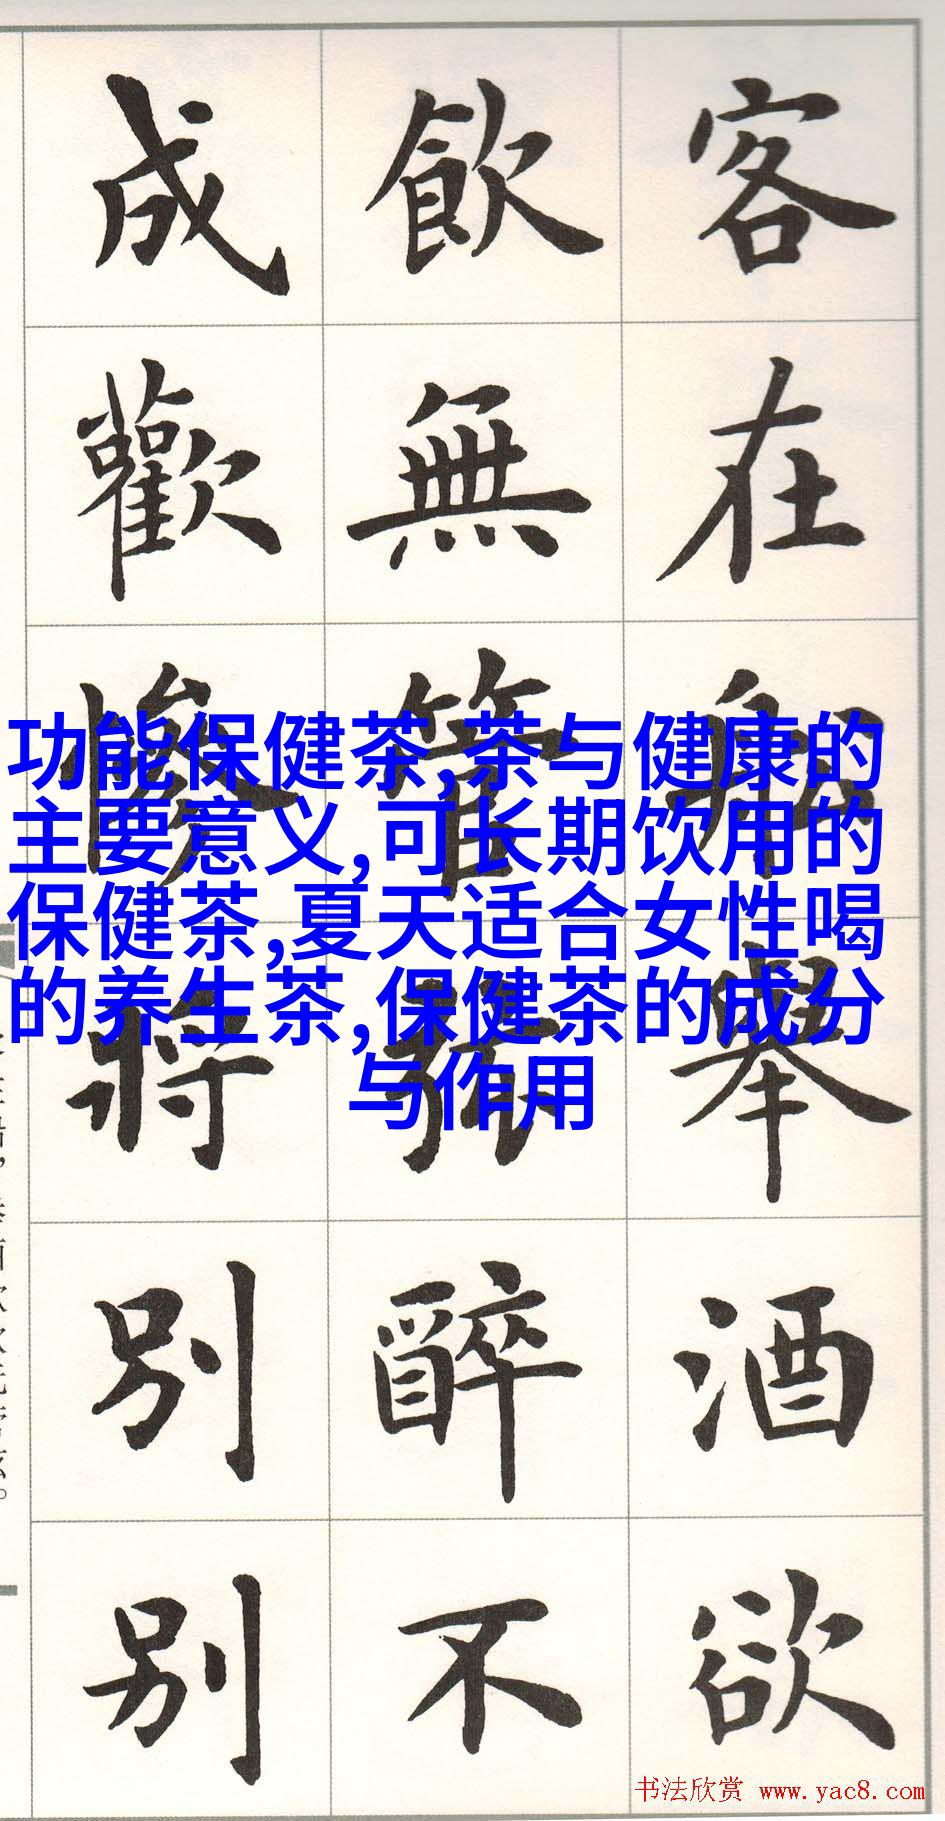 客在船舉酒欲
飲無管弦醉不
成歡慘將別別
功能保健茶,茶与健康的
主要意义,可长期饮用的
保健茶,夏天适合女性喝
的养生茶,保健茶的成分
与作用
书法欣赏 www.yac8.com